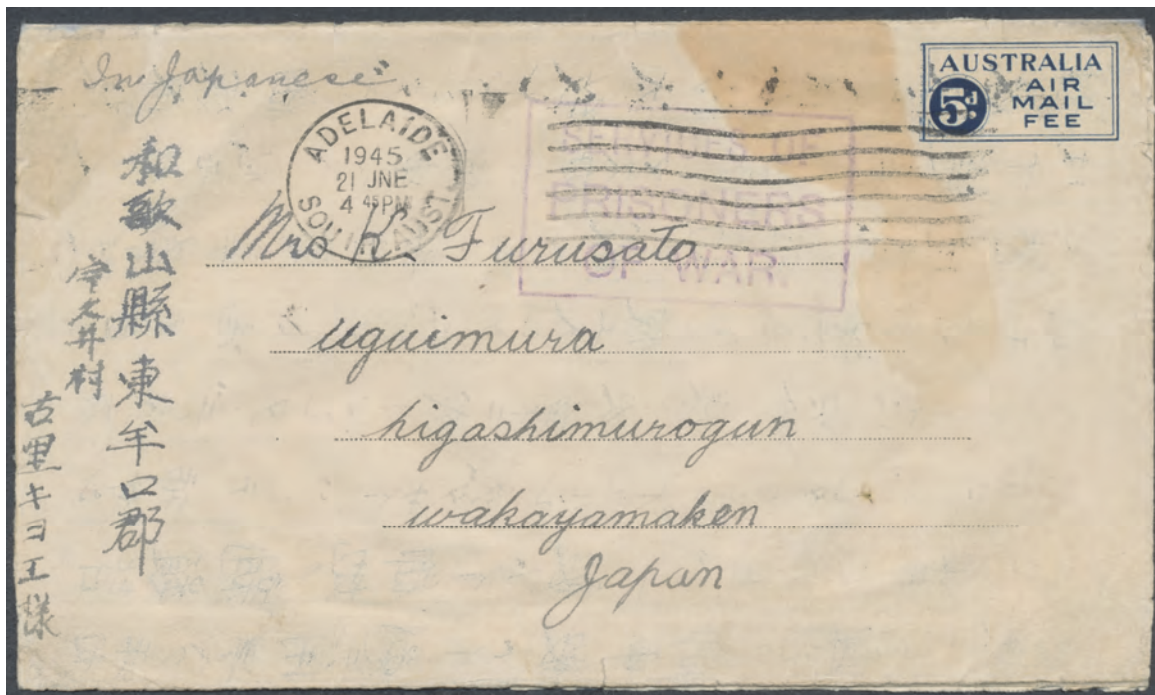 In Japanese
AUSTRALIA
5d.
AIR
MAIL
FEE
ADELAIDE
1945
21 JNE
4 45PM
SOUTH AUST
SERVICES OF
PRISONERS
OF WAR.
Mrs K. Furusato
Uguimura
higashimurogun
wakayamaken
Japan
和歌山縣東牟口郡
宇久井村
古里キヨエ様